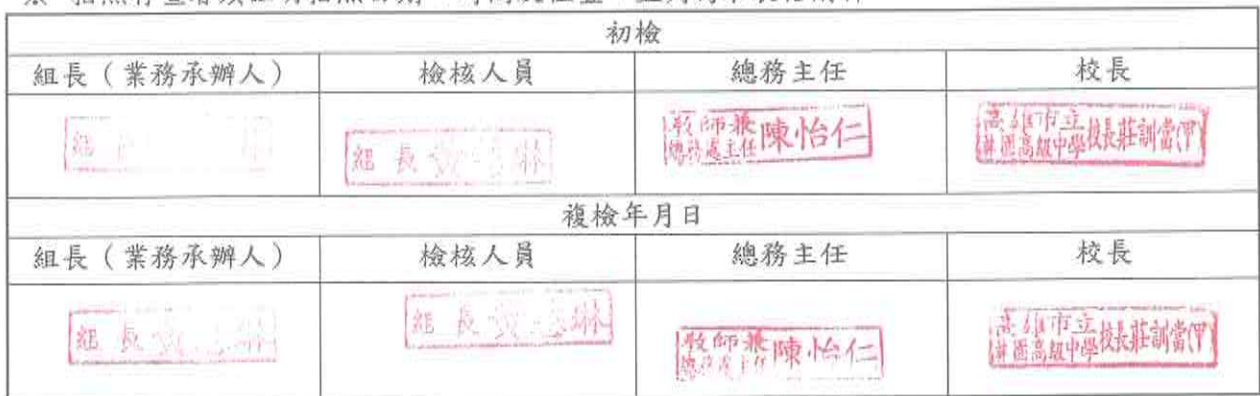 初檢
組長（業務承辦人） 檢核人員 總務主任 校長
組
組長 琳
教師兼
總務處主任 陳怡仁
高雄市立
高級中學 校長莊訓當(甲)
複檢年月日
組長（業務承辦人） 檢核人員 總務主任 校長
組長 琳
組長黃 琳
教師兼
總務處主任 陳怡仁
高雄市立
高級中學 校長莊訓當(甲)